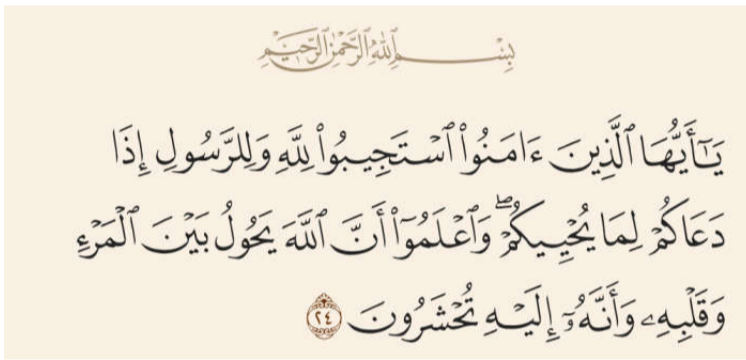 بِسْمِ ٱللَّهِ ٱلرَّحْمَٰنِ ٱلرَّحِيمِ
يَـٰٓأَيُّهَا ٱلَّذِينَ ءَامَنُوا۟ ٱسْتَجِيبُوا۟ لِلَّهِ وَلِلرَّسُولِ إِذَا
دَعَاكُمْ لِمَا يُحْيِيكُمْ ۖ وَٱعْلَمُوٓا۟ أَنَّ ٱللَّهَ يَحُولُ بَيْنَ ٱلْمَرْءِ
وَقَلْبِهِۦ وَأَنَّهُۥٓ إِلَيْهِ تُحْشَرُونَ ٢٤